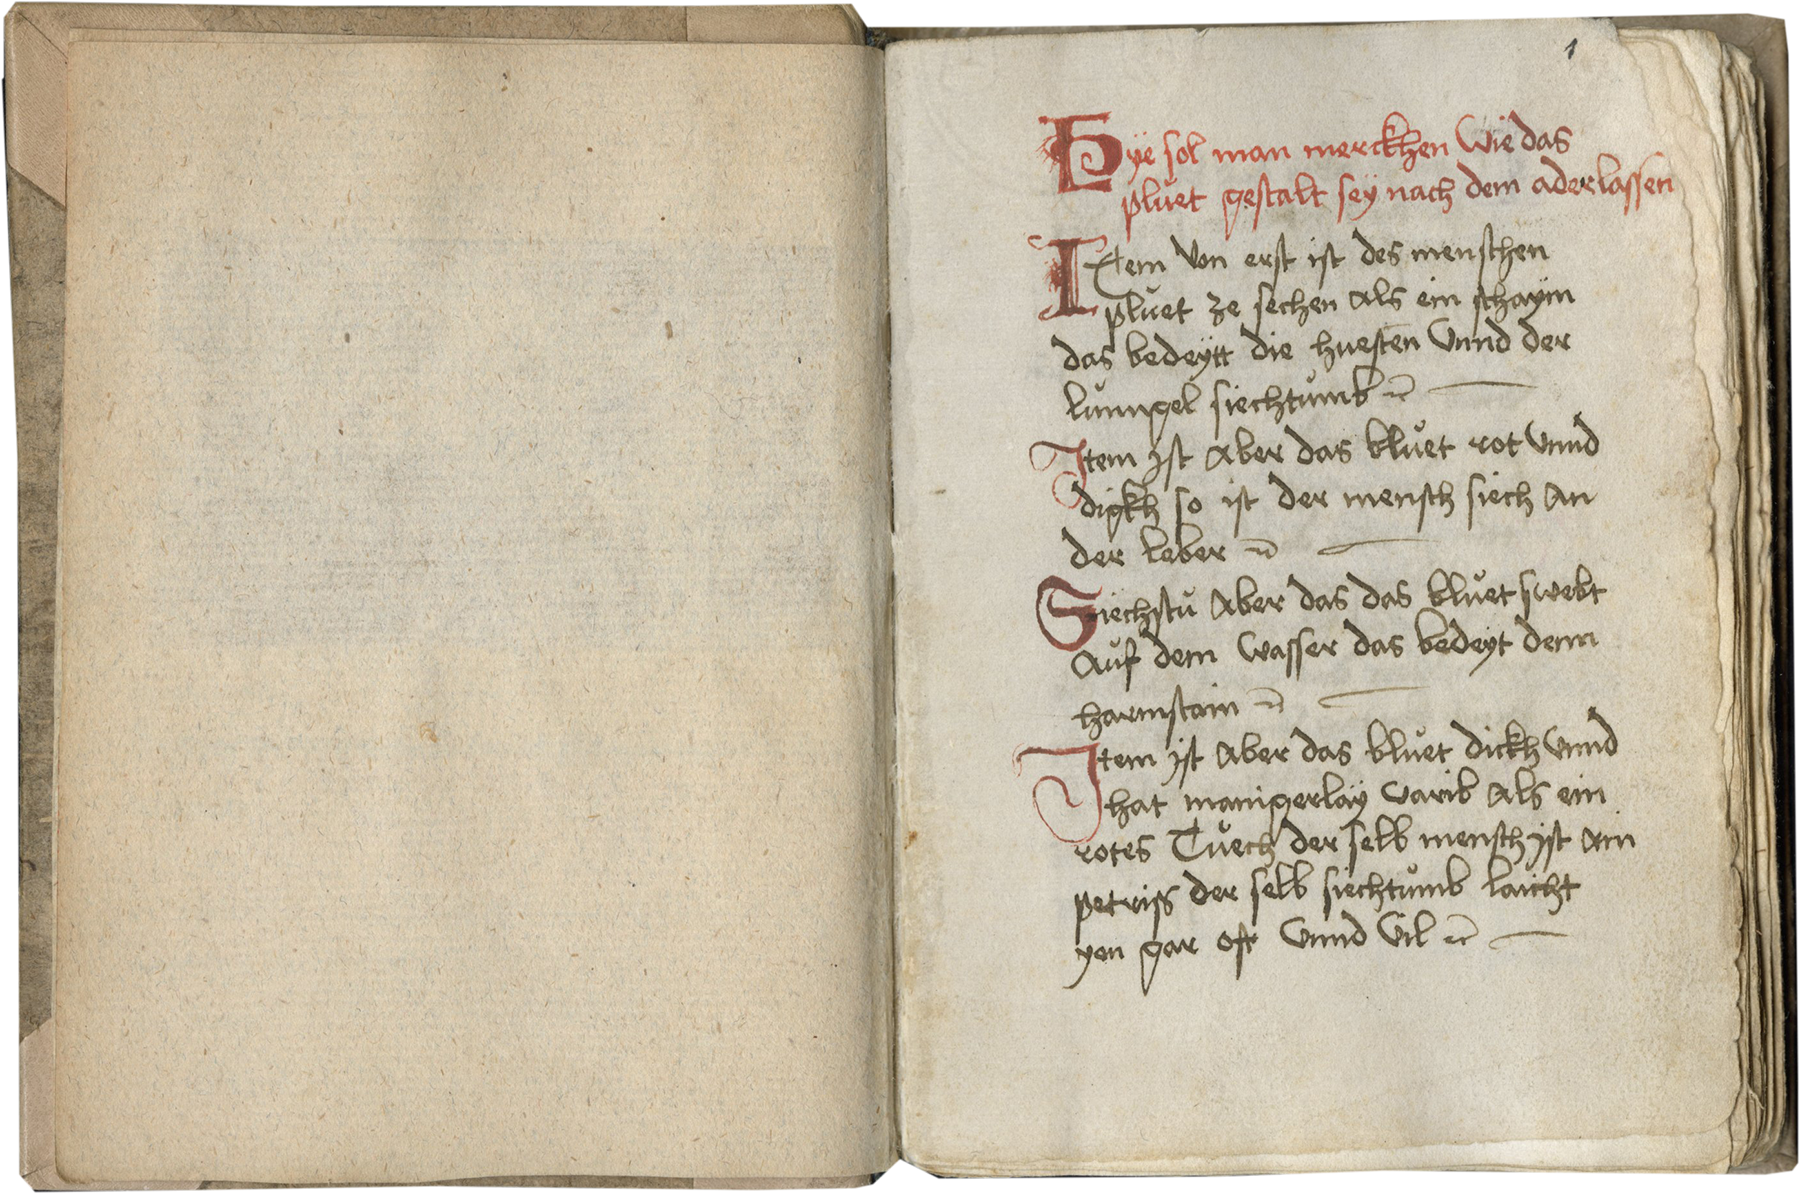 1
Hÿe sol man merckhen Wie das
pluet gestalt seÿ nach dem aderlassen
Item Von erst ist des menschen
pluet ze sechen Als ein schaÿm
das bedeÿtt die huesten Vnnd der
lunngel siechtumb
Item yst Aber das bluet rot Vnnd
digkh so ist der mensch siech An
der leber
Siechstu Aber das das bluet swebt
Auf dem Wasser das bedeÿt denn
harmstain
Item ist Aber das bluet dickh Vnnd
hat manigerlaÿ varib Als ein
rotes Tuech der selb mensch yst Ain
petriss der selb siechtumb laicht
yen gar offt Vnnd Vil